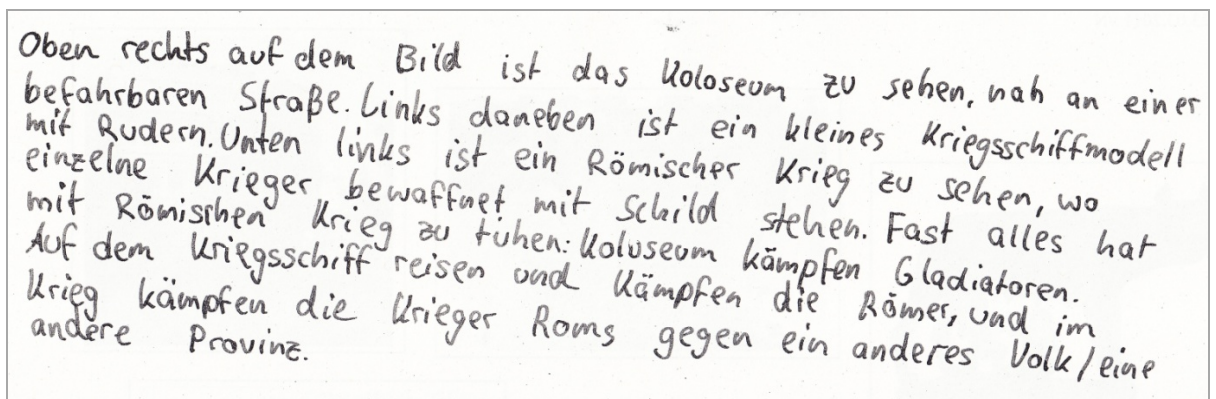 Oben rechts auf dem Bild ist das Koloseum zu sehen, nah an einer
befahrbaren Straße. Links daneben ist ein kleines Kriegsschiffmodell
mit Rudern. Unten links ist ein Römischer Krieg zu sehen, wo
einzelne Krieger bewaffnet mit Schild stehen. Fast alles hat
mit Römischen Krieg zu tuhen: Koluseum kämpfen Gladiatoren.
Auf dem Kriegsschiff reisen und Kämpfen die Römer, und im
Krieg kämpfen die Krieger Roms gegen ein anderes Volk/eine
andere Provinz.